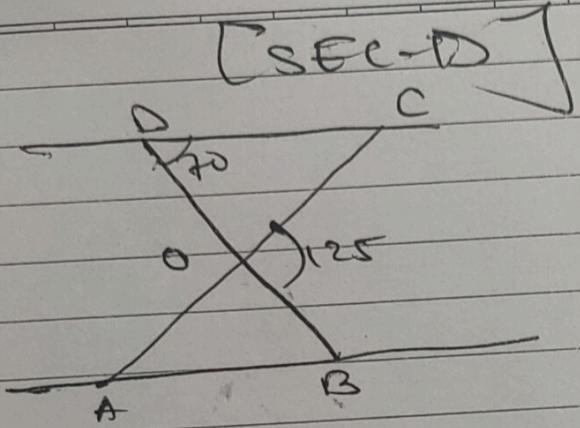 [SEC-D]
D C
70
O 125
B
A